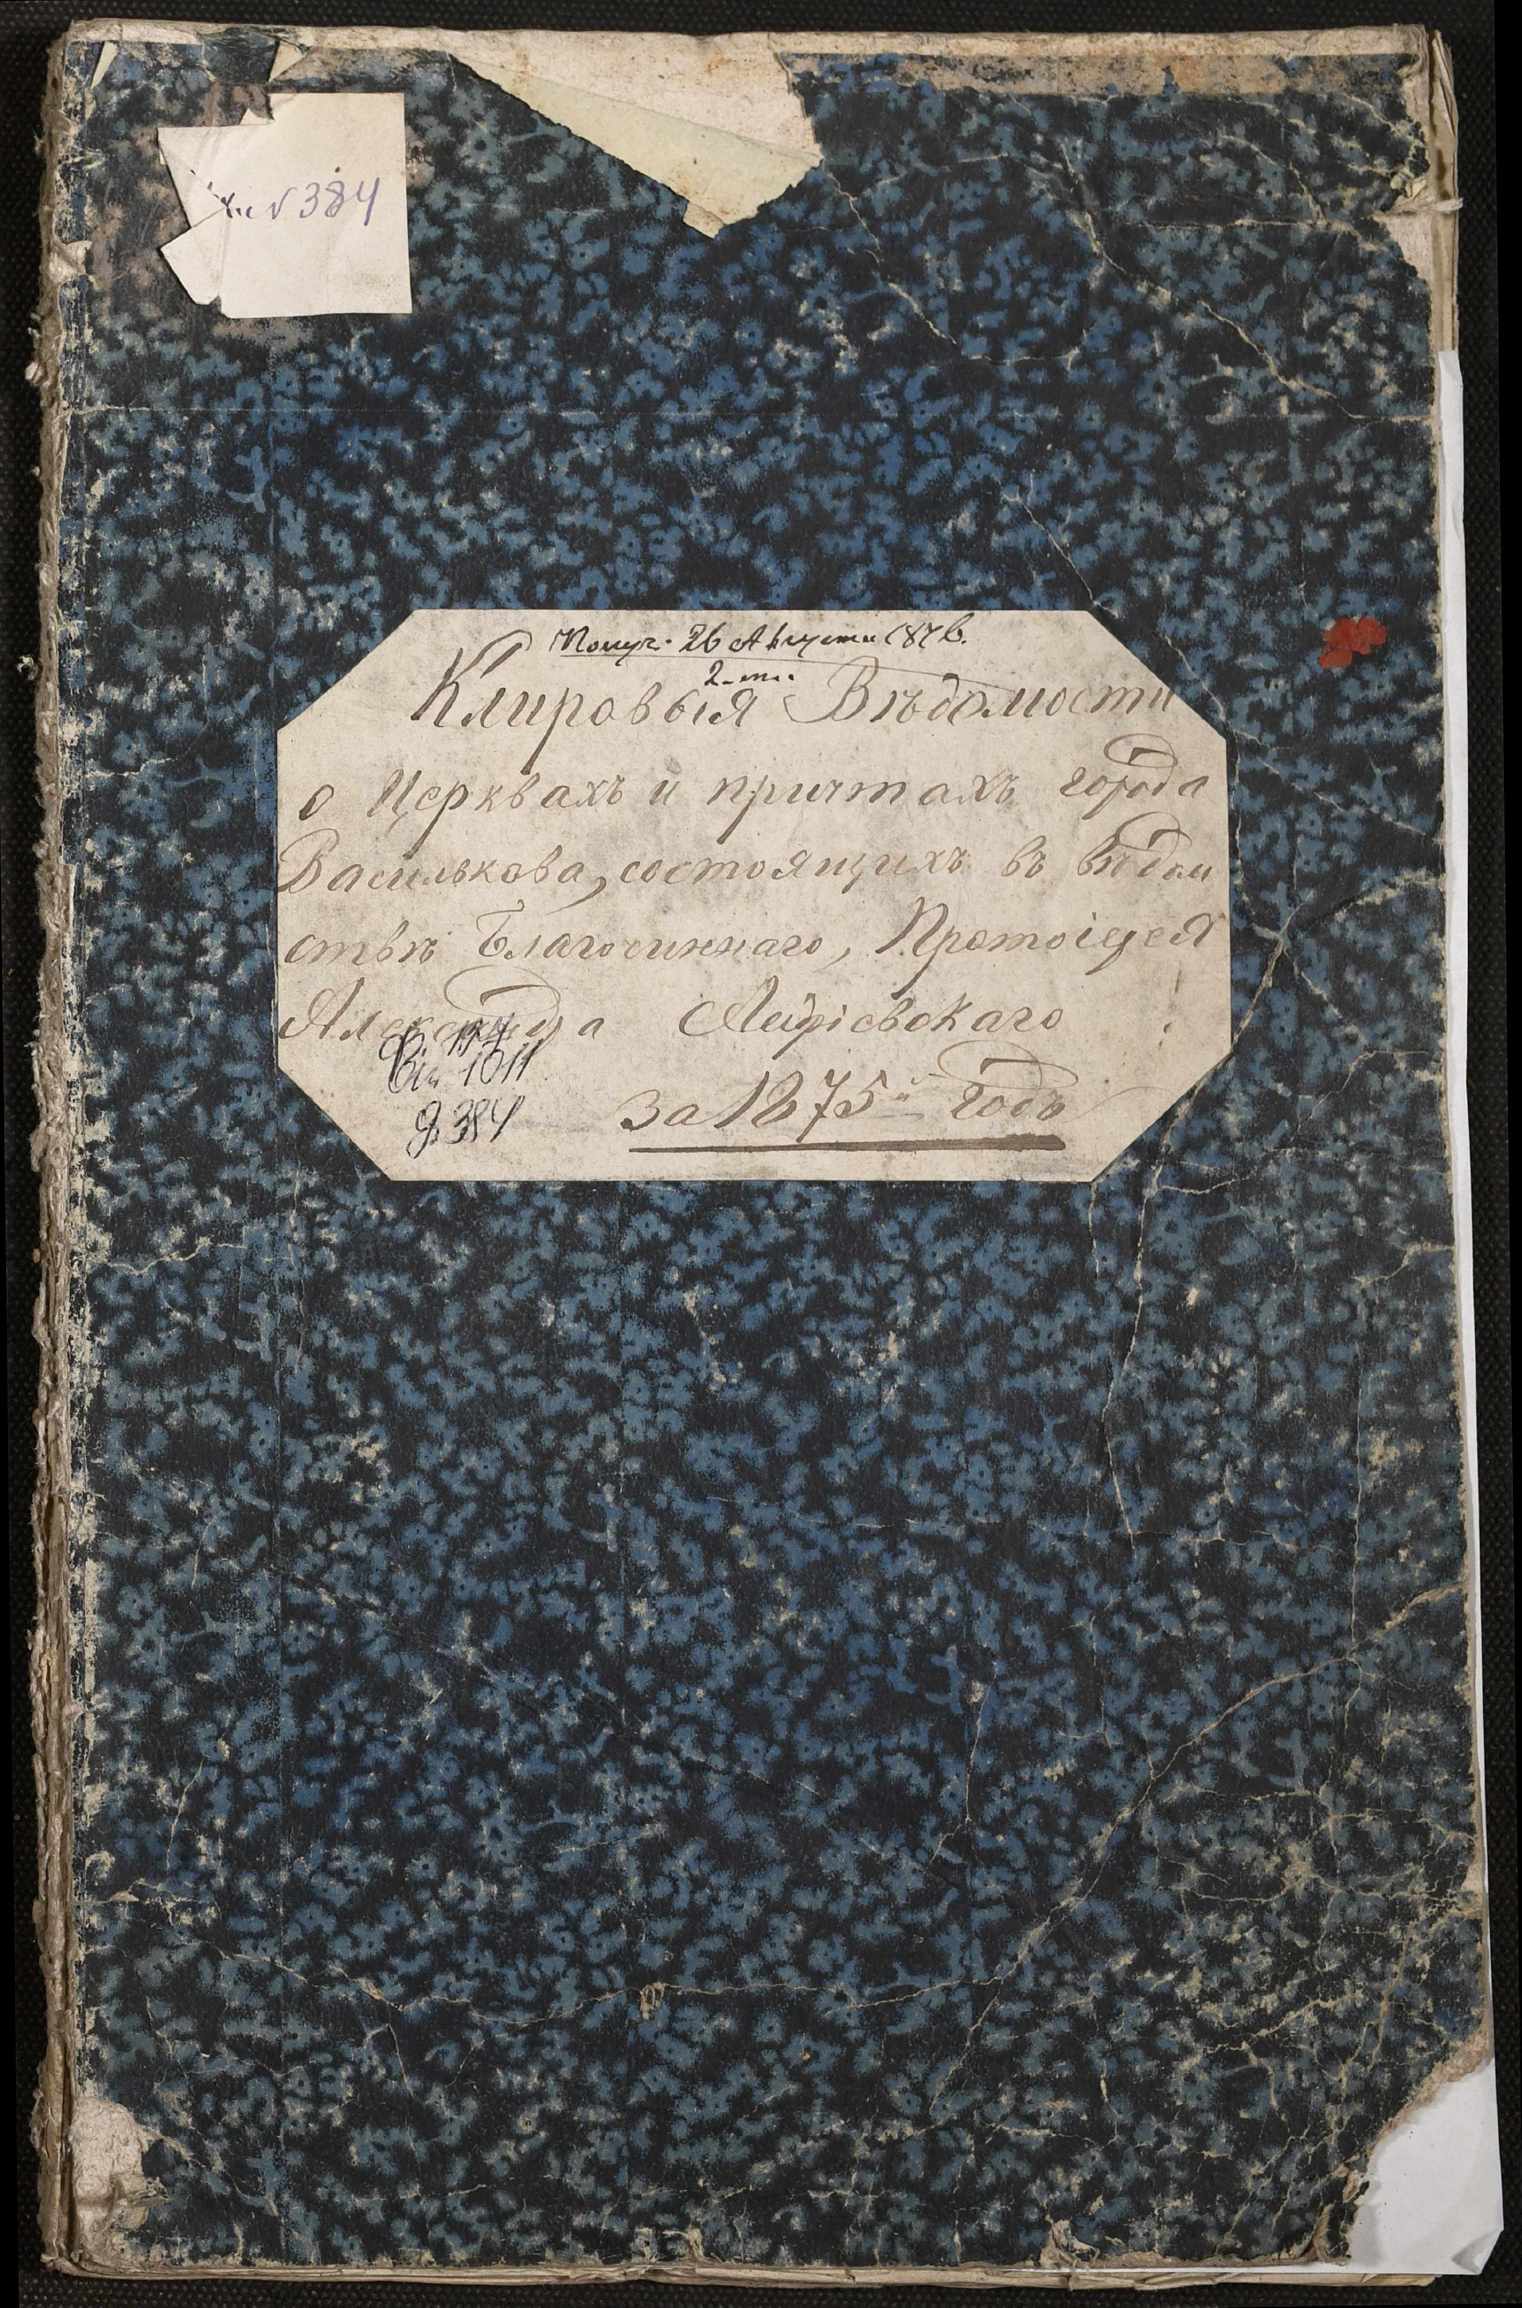 № 384
Получ. 26 Августа 1876.
Клировыя Вѣдомости
о Церквахъ и причтахъ города
Василькова, состоящихъ въ вѣдом
ствѣ Благочиннаго, Протоіерея
Александра
за 1875й годъ
1011
384